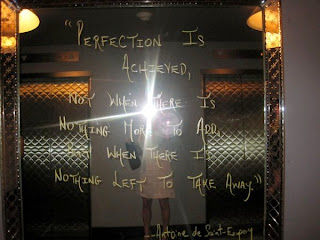 "PERFECTION IS
ACHIEVED,
NOT WHEN THERE IS
NOTHING MORE TO ADD,
BUT WHEN THERE IS
NOTHING LEFT TO TAKE AWAY."
Antoine de Saint-Exupery